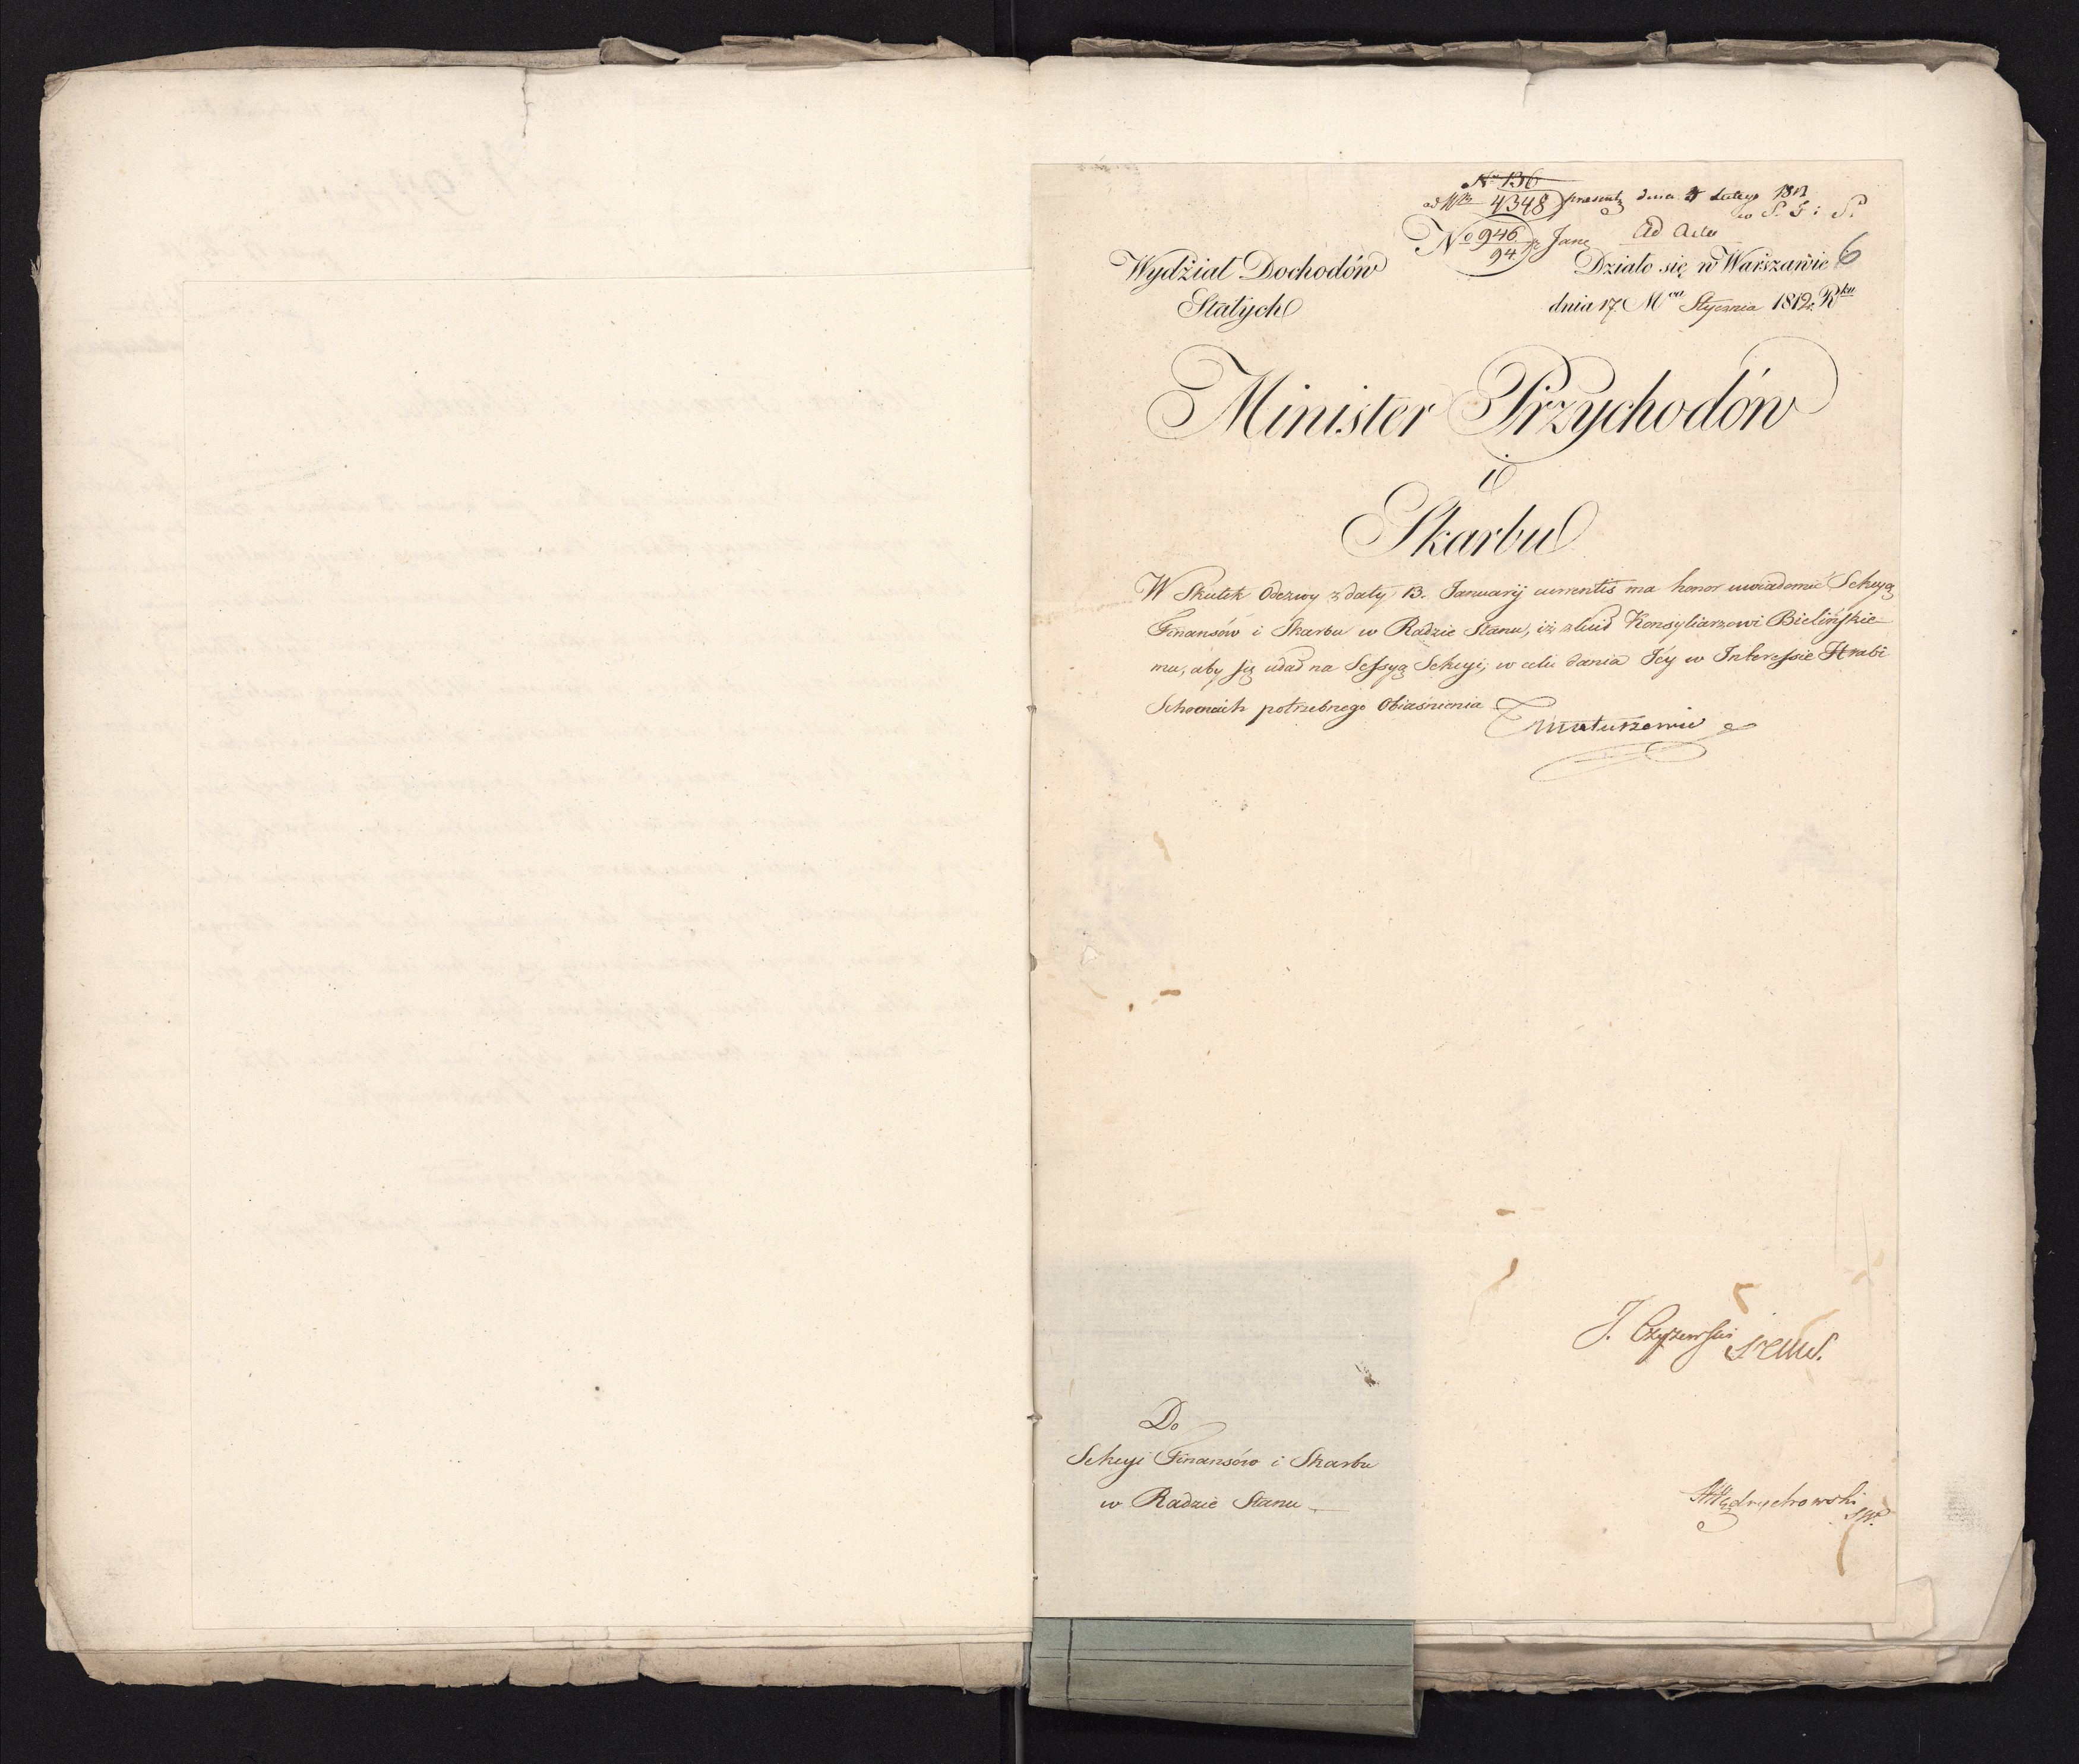 N<sup>o</sup> 136
ad N<sup>m</sup> 4348 praesent dnia 4 Lutego 1812
w S. F: i S.
N<sup>o</sup> 946/94 Jan
Ad Acta
Wydział Dochodów
Stałych
Działo się w Warszawie 6
dnia 17. M<sup>ca</sup> Stycznia 1812. R<sup>ku</sup>
Minister Przychodów
i
Skarbu
W Skutek Odezwy z daty 13. Januarij currentis ma honor uwiadomić Sekcyą
Finansów i Skarbu w Radzie Stanu, iż zlecił Konsyliarzowi Bielińskie-
mu, aby się udał na Sessyą Sekcyi, w celu dania Jey w Interessie Hrabi
potrzebnego Obiaśnienia
Matuszewic
J. Czyżewski
Do
Sekcyi Finansów i Skarbu
w Radzie Stanu
Wędrychowski